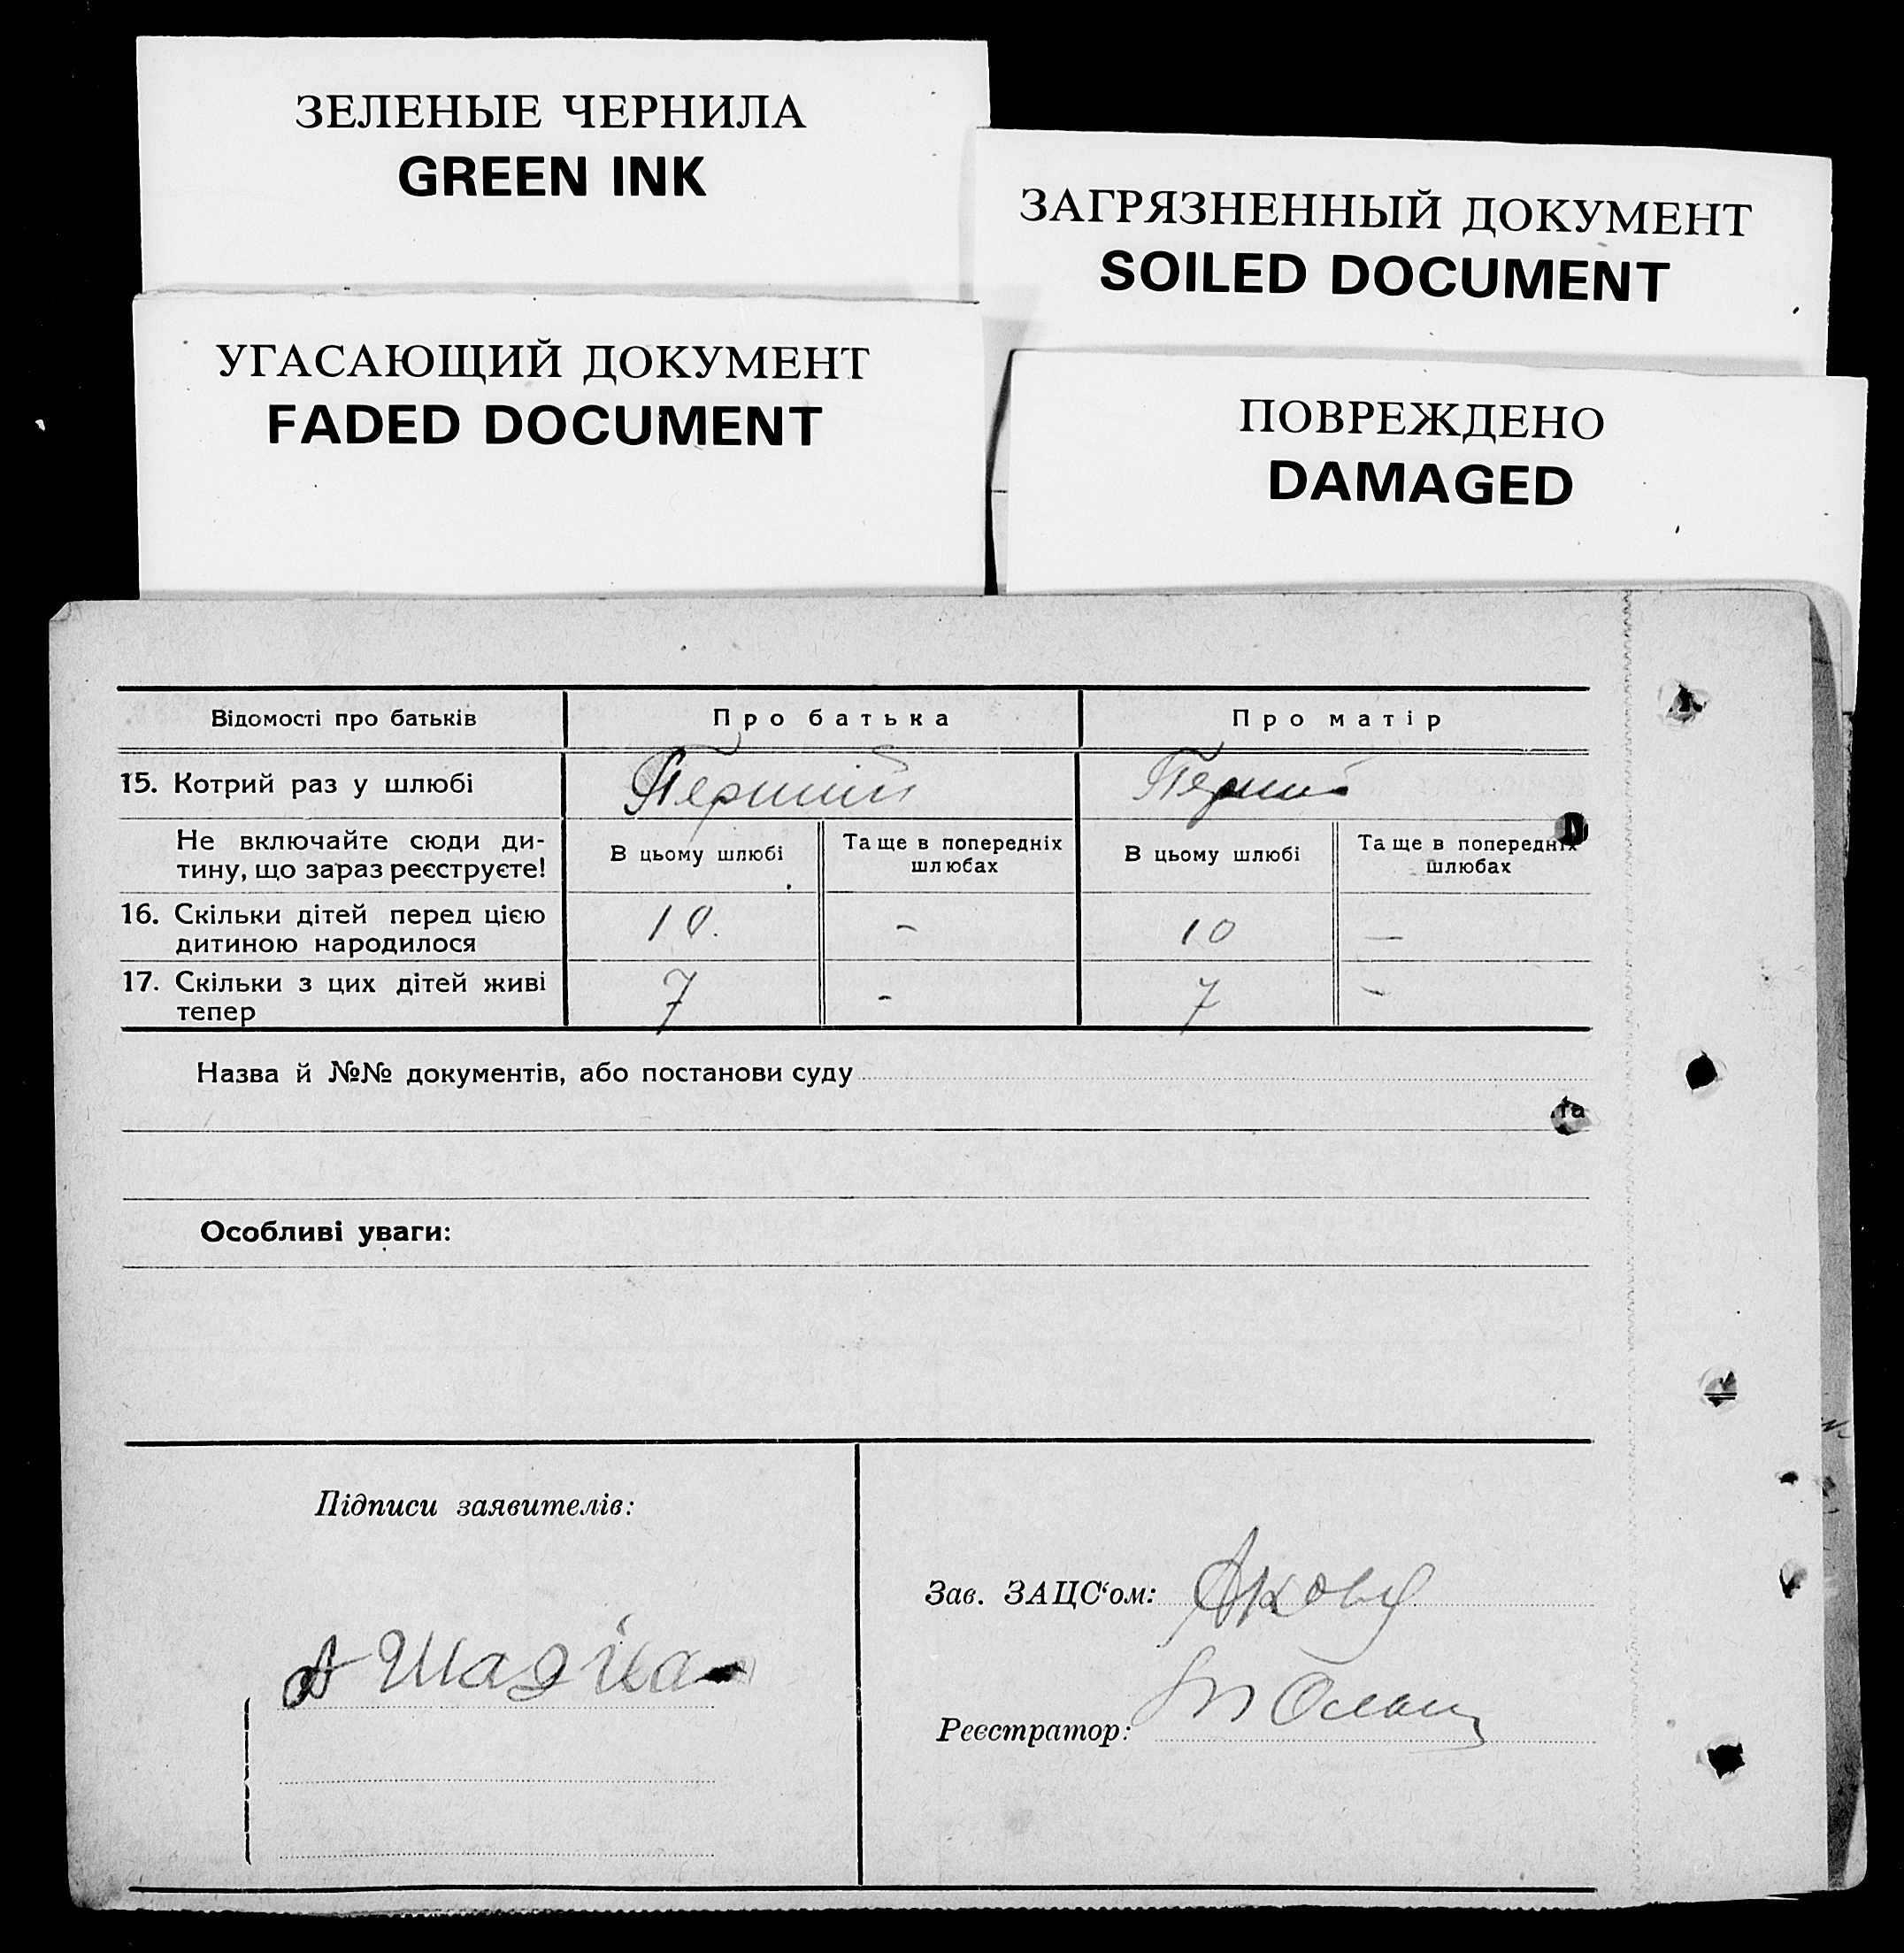 ЗЕЛЕНЫЕ ЧЕРНИЛА
GREEN INK
ЗАГРЯЗНЕННЫЙ ДОКУМЕНТ
SOILED DOCUMENT
УГАСАЮЩИЙ ДОКУМЕНТ
FADED DOCUMENT
ПОВРЕЖДЕНО
DAMAGED
Відомості про батьків Про батька Про матір
15. Котрий раз у шлюбі Перший Перший
Не включайте сюди ди-
тину, що зараз реєструєте!
В цьому шлюбі
Та ще в попередніх
шлюбах
В цьому шлюбі
Та ще в попередніх
шлюбах
16. Скільки дітей перед цією
дитиною народилося
10. - 10 —
17. Скільки з цих дітей живі
тепер
7 - 7 -
Назва й №№ документів, або постанови суду
та
Особливі уваги:
Підписи заявителів:
Зав. ЗАЦС‘ом:
Реєстратор: